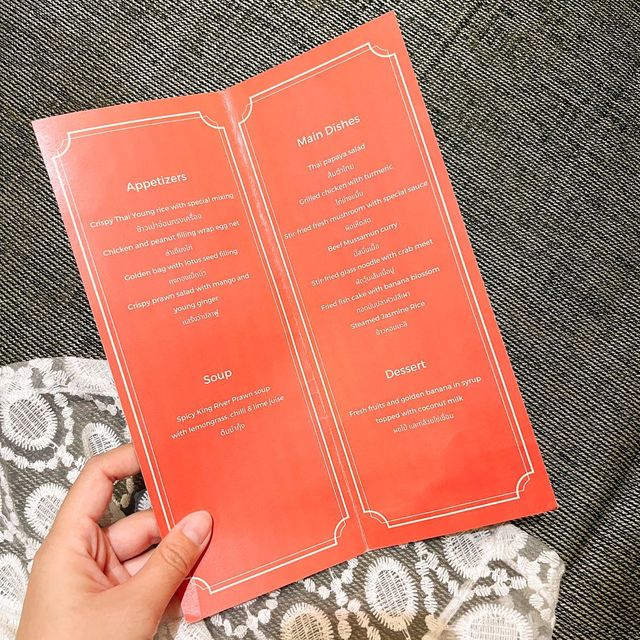 Appetizers
Crispy Thai Young rice with special mixing
ข้าวเม่าอ่อนทรงเครื่อง
Chicken and peanut filling wrap egg net
ล่าเตียงไก่
Golden bag with lotus seed filling
ถุงทองเม็ดบัว
Crispy prawn salad with mango and
young ginger
Soup
Spicy King River Prawn soup
with lemongrass, chilli & lime juise
ต้มยำกุ้ง
Main Dishes
Thai papaya salad
ส้มตำไทย
Grilled chicken with turmeric
ไก่ย่างขมิ้น
Stir fried fresh mushroom with special sauce
ผัดเห็ดสด
Beef Mussamun curry
มัสมั่นเนื้อ
Stir fried glass noodle with crab meet
ผัดวุ้นเส้นเนื้อปู
Fried fish cake with banana blossom
ทอดมันปลาหัวปลีเผา
Steamed Jasmine Rice
ข้าวหอมมะลิ
Dessert
Fresh fruits and golden banana in syrup
topped with coconut milk
ผลไม้ และกล้วยไข่เชื่อม